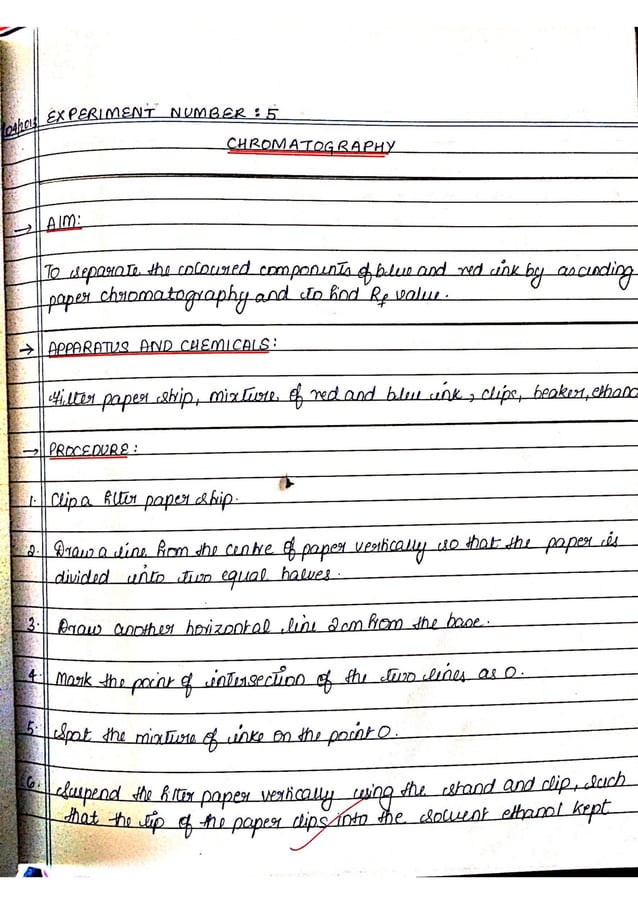 EXPERIMENT NUMBER : 5
CHROMATOGRAPHY
→ AIM:
To separate the coloured components of blue and red ink by ascending
paper chromatography and to find Rf value.
→ APPARATUS AND CHEMICALS:
Filter paper strip, mixture of red and blue ink, clips, beaker, ethano
→ PROCEDURE:
1. Clip a filter paper strip.
2. Draw a line from the centre of paper vertically so that the paper is
divided into two equal halves.
3. Draw another horizontal line 2cm from the base.
4. Mark the point of intersection of the two lines as O.
5. Spot the mixture of inke on the point O.
6. Suspend the filter paper vertically using the stand and clip, such
that the tip of the paper dips into the solvent ethanol kept